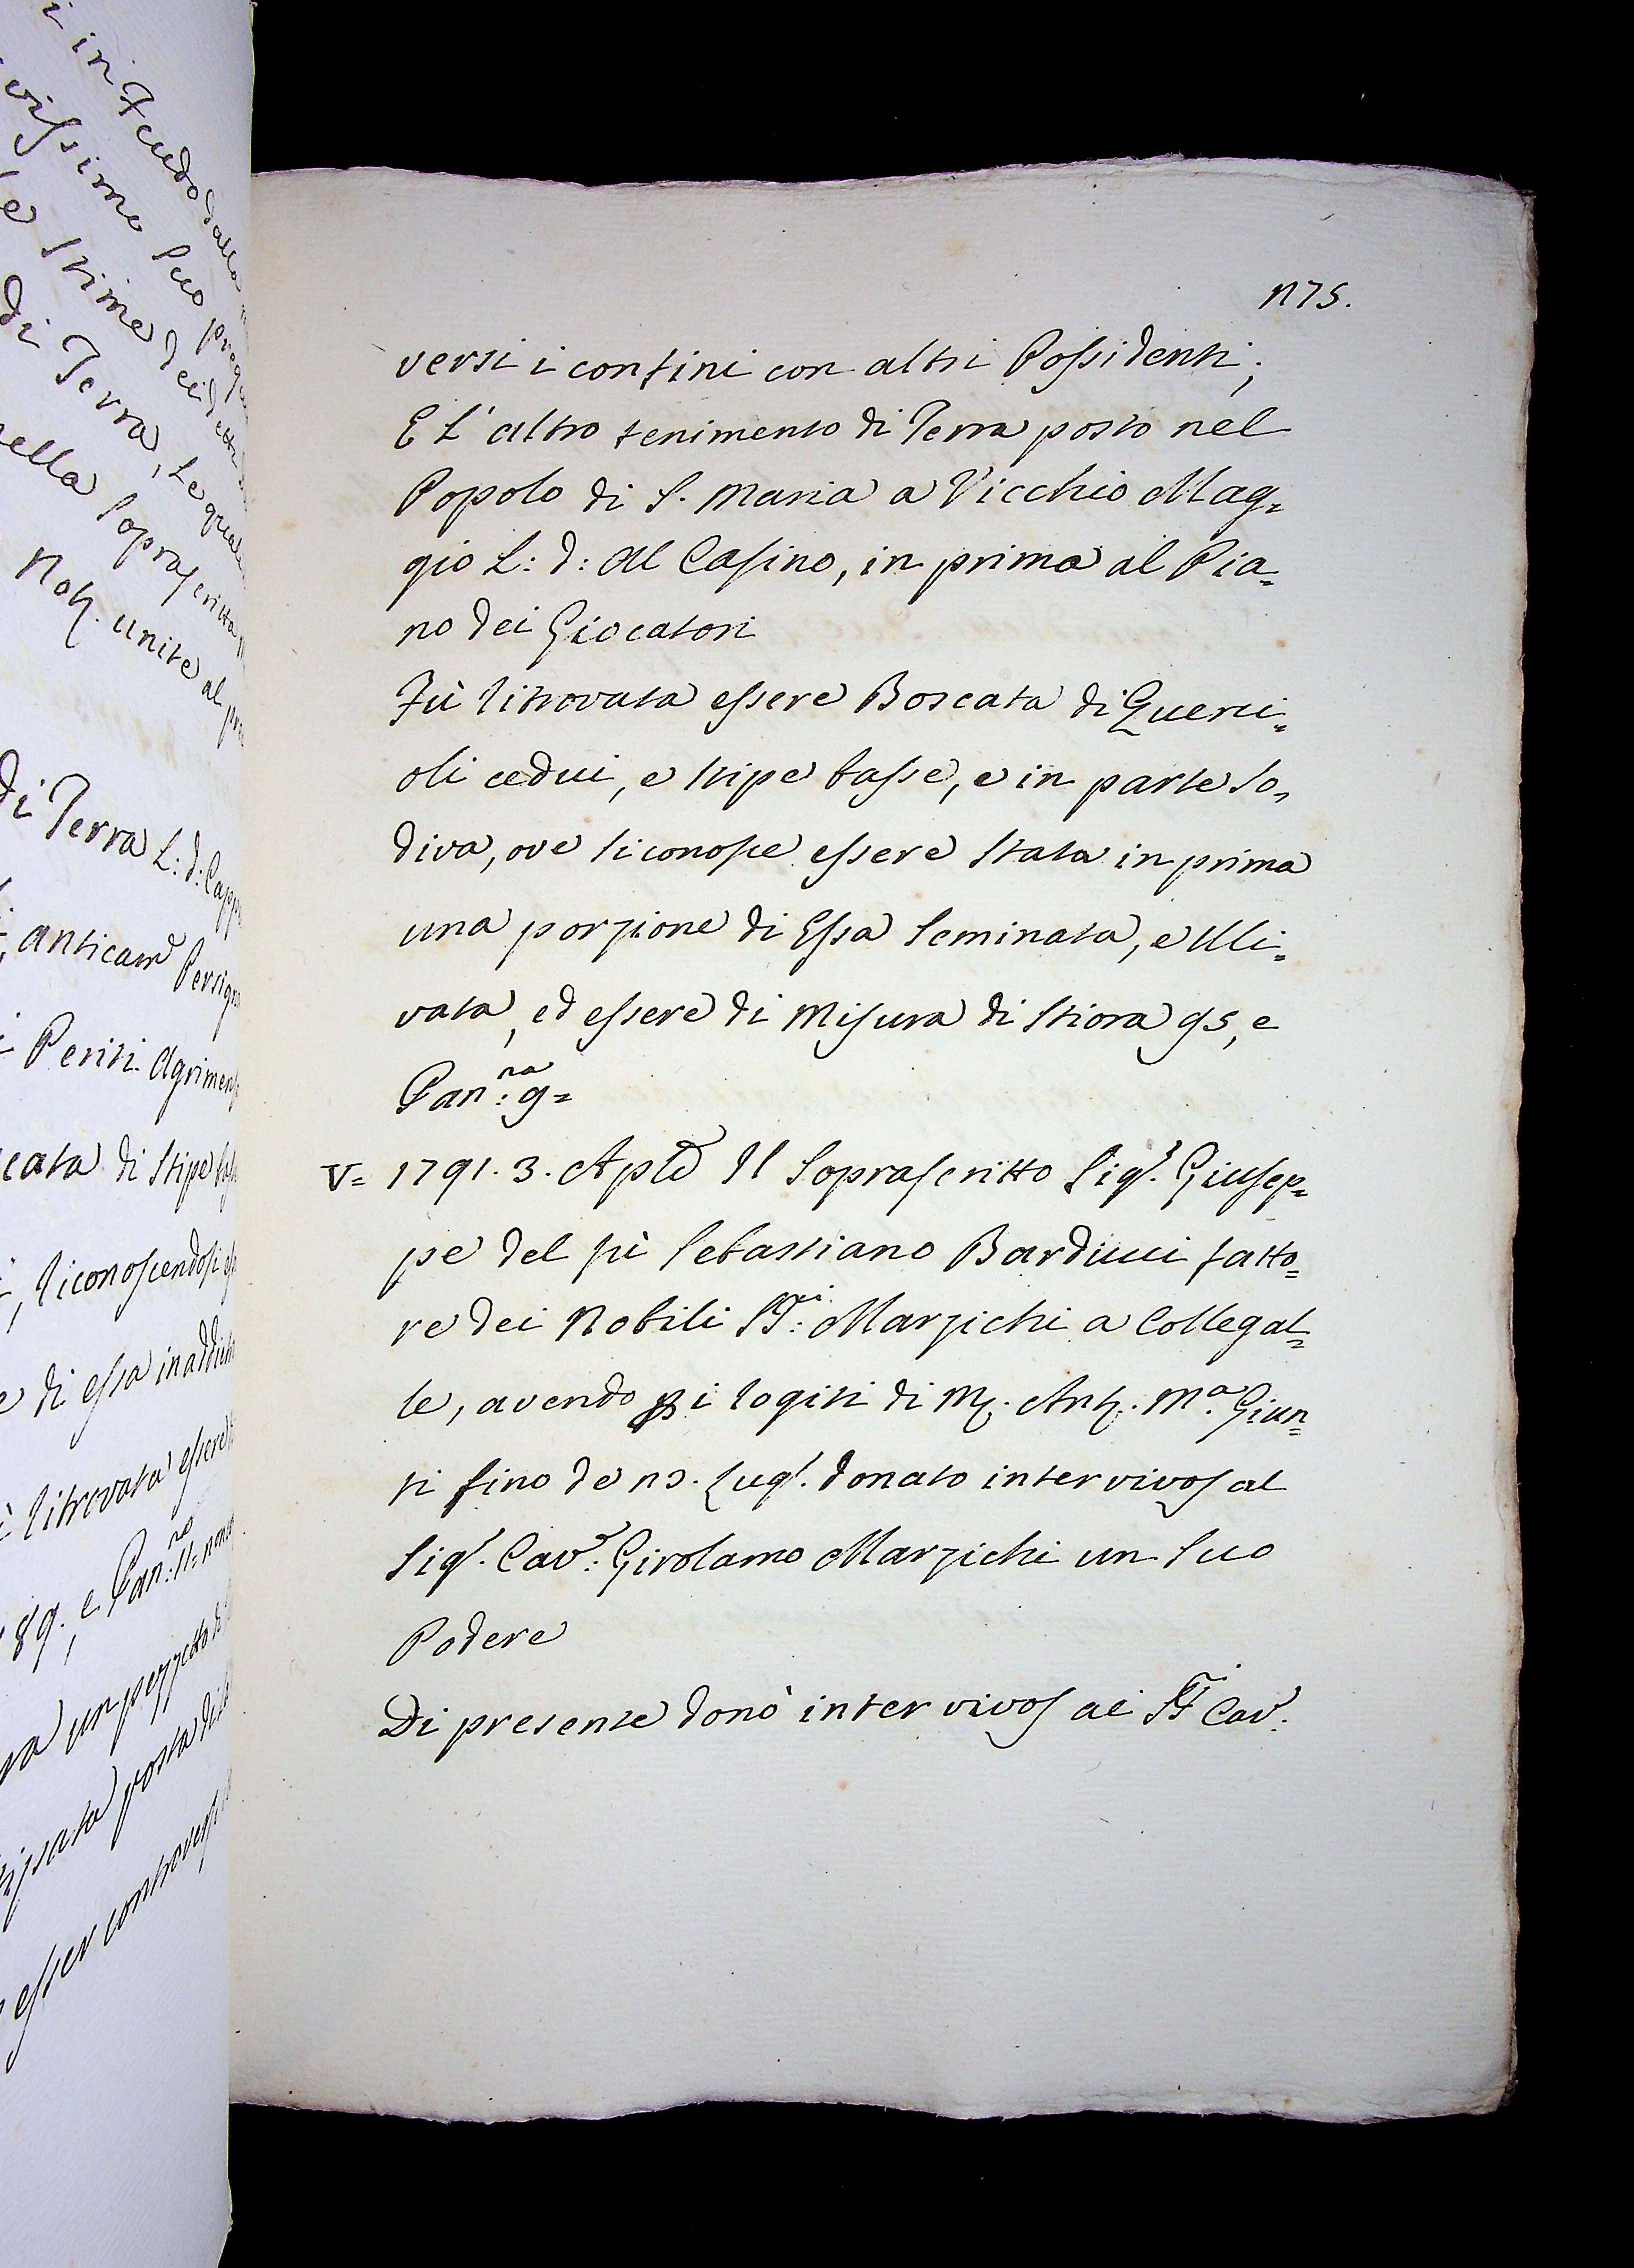 i in Feudo dalla
vissime suo
le stime decidette
di Terra, le quali
nella soprascritta
Noti. unite al
di Terra L: d: Capp
anticamte Persign
i Periti Agrimens
cata di Stipe bass
, riconoscendosi
e di essa in addietro
è ritrovata essere
89. e Pan:re 11=
un pezzetto di
posta
esser controvers
175.
versi i confini con altri Possidenti;
E L'altro tenimento di Terra posto nel
Popolo di S. Maria a Vicchio Mag=
gio L: d: Al Casino, in prima al Pia=
no dei Giocatori
Fù ritrovata essere Boscata di Querci=
oli cedui, e stipe basse, e in parte so=
diva, ove si conosce essere stata in prima
una porzione di Essa seminata, e Uli=
vata, ed essere di Misura di stiora 95, e
Pan:ra 9=
V= 1791. 3. Aple Il Soprascritto Sigr. Giusep=
pe del fù Sebastiano Barducci fatto=
re dei Nobili SSri: Marzichi a Collegal=
le, avendo pi rogiti di Mr. Ant. Ma. Giun=
ti fino de 13. Lugl. donato intervivos al
Sigr. Cavr: Girolamo Marzichi un suo
Podere
Di presente donò inter vivos ai SSri Cavr: